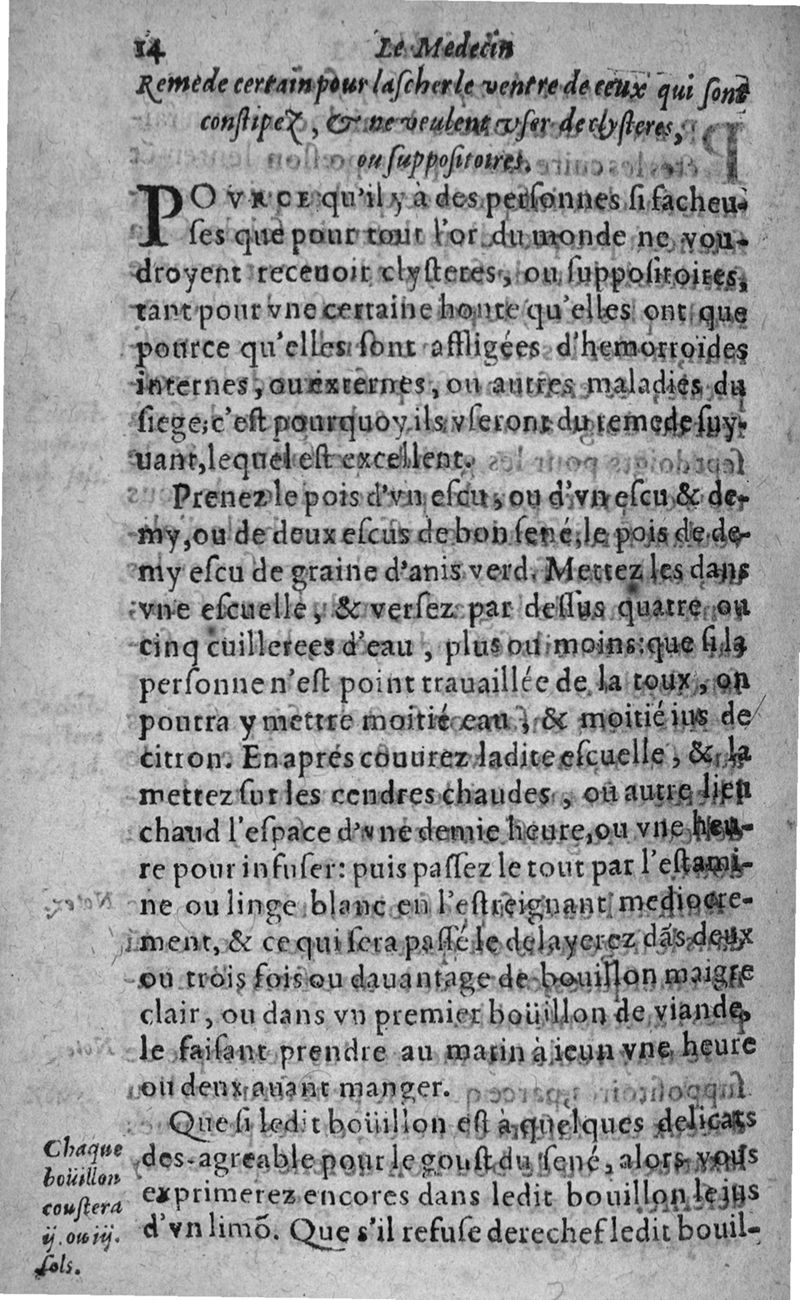 14 Le Medecin
Remede certain pour lascher le ventre de ceux qui sont
constipez, & ne veulent vser de clysteres,
ou suppositoires.
POVRCE qu'il y à des personnes si facheu-
ses que pour tout l'or du monde ne vou-
droyent receuoir clysteres, ou suppositoires,
tant pour vne certaine honte qu'elles ont que
pource qu'elles sont affligées d'hemorroïdes
internes, ou externes, ou autres maladies du
siege; c'est pourquoy ils vseront du remede suy-
uant, lequel est excellent.
Prenez le pois d'vn escu, ou d'vn escu & de-
my, ou de deux escus de bon sené, le pois de de-
my escu de graine d'anis verd. Mettez les dans
vne escuelle, & versez par dessus quatre ou
cinq cuillerees d'eau, plus ou moins: que si la
personne n'est point trauaillée de la toux, on
pourra y mettre moitié eau, & moitié ius de
citron. En aprés couurez ladite escuelle, & la
mettez sur les cendres chaudes, ou autre lieu
chaud l'espace d'vne demie heure, ou vne heu-
re pour infuser: puis passez le tout par l'estami-
ne ou linge blanc en l'estreignant mediocre-
ment, & ce qui sera passé le delayerez dãs deux
ou trois fois ou dauantage de bouillon maigre
clair, ou dans vn premier boüillon de viande,
le faisant prendre au matin à ieun vne heure
ou deux auant manger.
Que si ledit boüillon est à quelques delicats
des-agreable pour le goust du sené, alors vous
exprimerez encores dans ledit bouillon le jus
d'vn limõ. Que s'il refuse derechef ledit bouil-
Chaque
boüillon
coustera
ij. ou iij.
sols.